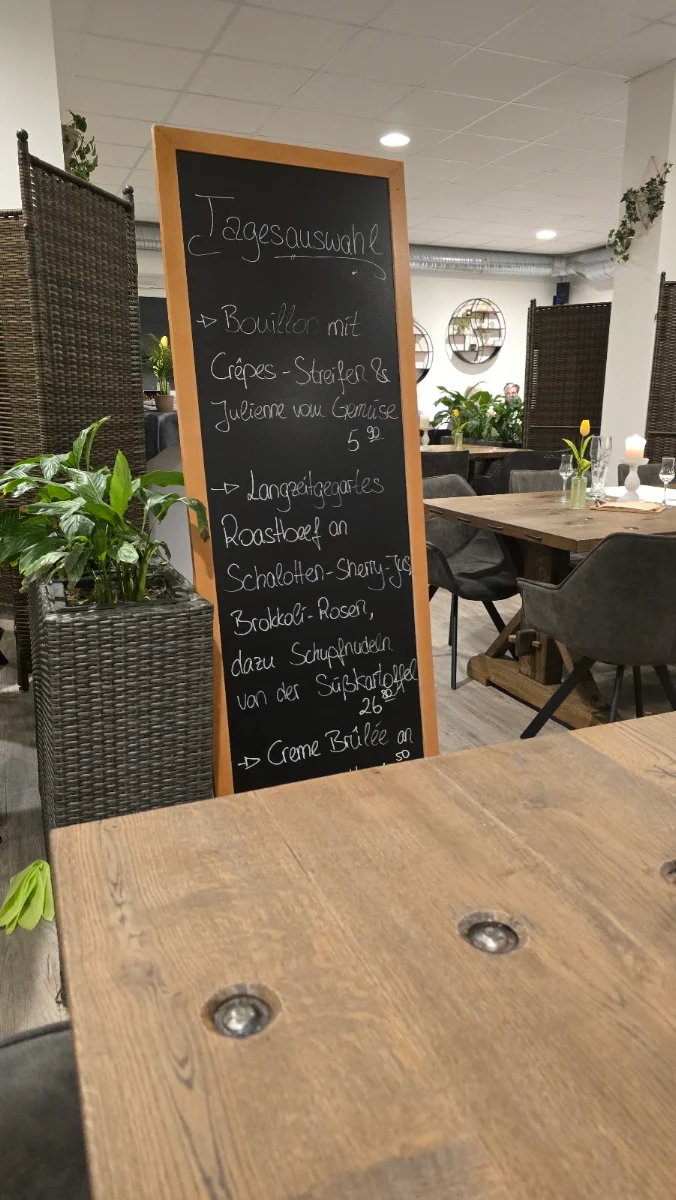 Tagesauswahl
→ Bouillon mit
Crêpes-Streifen &
Julienne vom Gemüse
5 90
→ Langzeitgegartes
Roastbeef an
Schalotten-Sherry-Jus,
Brokkoli-Rosen,
dazu Schupfnudeln
von der Süßkartoffel
26 80
→ Creme Brûlée an
50